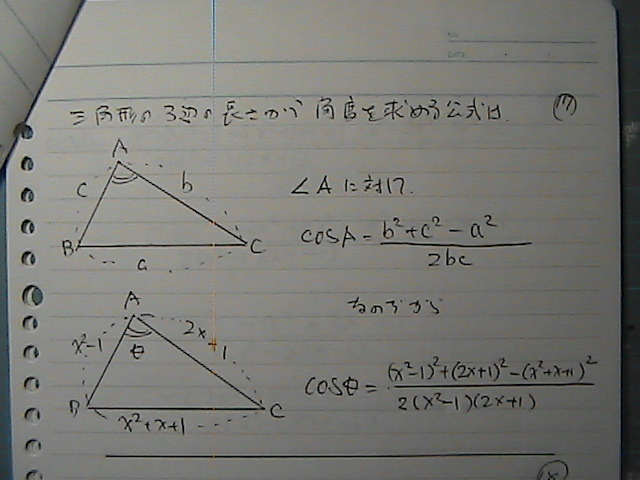 三角形の3辺の長さから 角度を求める公式は. (17)
A
c
b
∠Aに対して.
B
C
a
cosA = b²+c²-a² / 2bc
なのですから
A
x²-1
θ
2x+1
B
C
x²+x+1
cosθ = (x²-1)²+(2x+1)²-(x²+x+1)² / 2(x²-1)(2x+1)